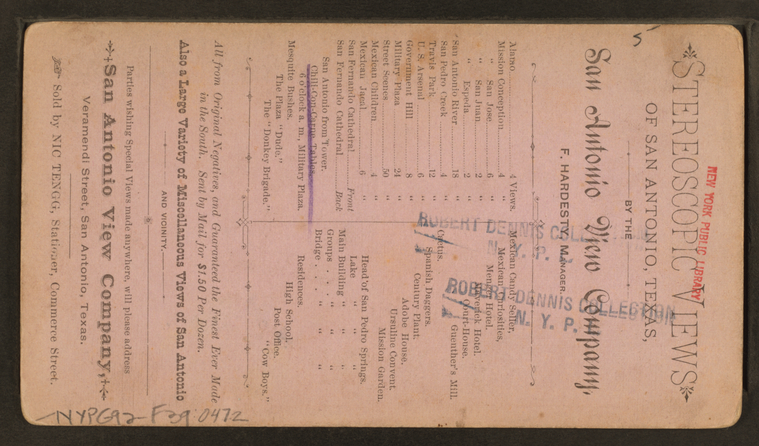 STEREOSCOPIC VIEWS
OF SAN ANTONIO, TEXAS,
BY THE
San Antonio View Company,
F. HARDESTY, MANAGER.
Alamo 4 Views.
Mission Conception 4 "
" San Jose 6 "
" San Juan 2 "
" Espeda 2 "
San Antonio River 18 "
San Pedro Creek 4 "
Travis Park 12 "
U. S. Arsenal 6 "
Government Hill 8 "
Military Plaza 24 "
Street Scenes 50 "
Mexican Children 4 "
Mexican Jacal 6 "
San Fernando Cathedral Front
San Fernando Cathedral Back
San Antonio from Tower.
Chili-Con-Carne Tables.
6 o'clock a. m., Military Plaza.
Mesquite Bushes.
The Plaza "Dude."
The "Donkey Brigade."
Mexican Candy Seller.
Mexican Curiosities.
Menger Hotel.
Maverick Hotel.
Court-House.
Guenther's Mill.
Spanish Daggers.
Century Plant.
Adobe House.
Ursuline Convent.
Mission Garden.
Head of San Pedro Springs.
Lake " "
Main Building " "
Groups " "
Bridge " "
Residences.
High School.
Post Office.
"Cow Boys."
All from Original Negatives, and Guaranteed the Finest Ever Made
in the South. Sent by Mail for $1.50 Per Dozen.
Also a Large Variety of Miscellaneous Views of San Antonio
AND VICINITY.
Parties wishing Special Views made anywhere, will please address
San Antonio View Company,
Veramendi Street, San Antonio, Texas.
Sold by NIC TENGG, Stationer, Commerce Street.
NEW YORK PUBLIC LIBRARY
ROBERT DENNIS COLLECTION
N. Y. P. L.
ROBERT DENNIS COLLECTION
N. Y. P. L.
5
NYPG92-F39.0472